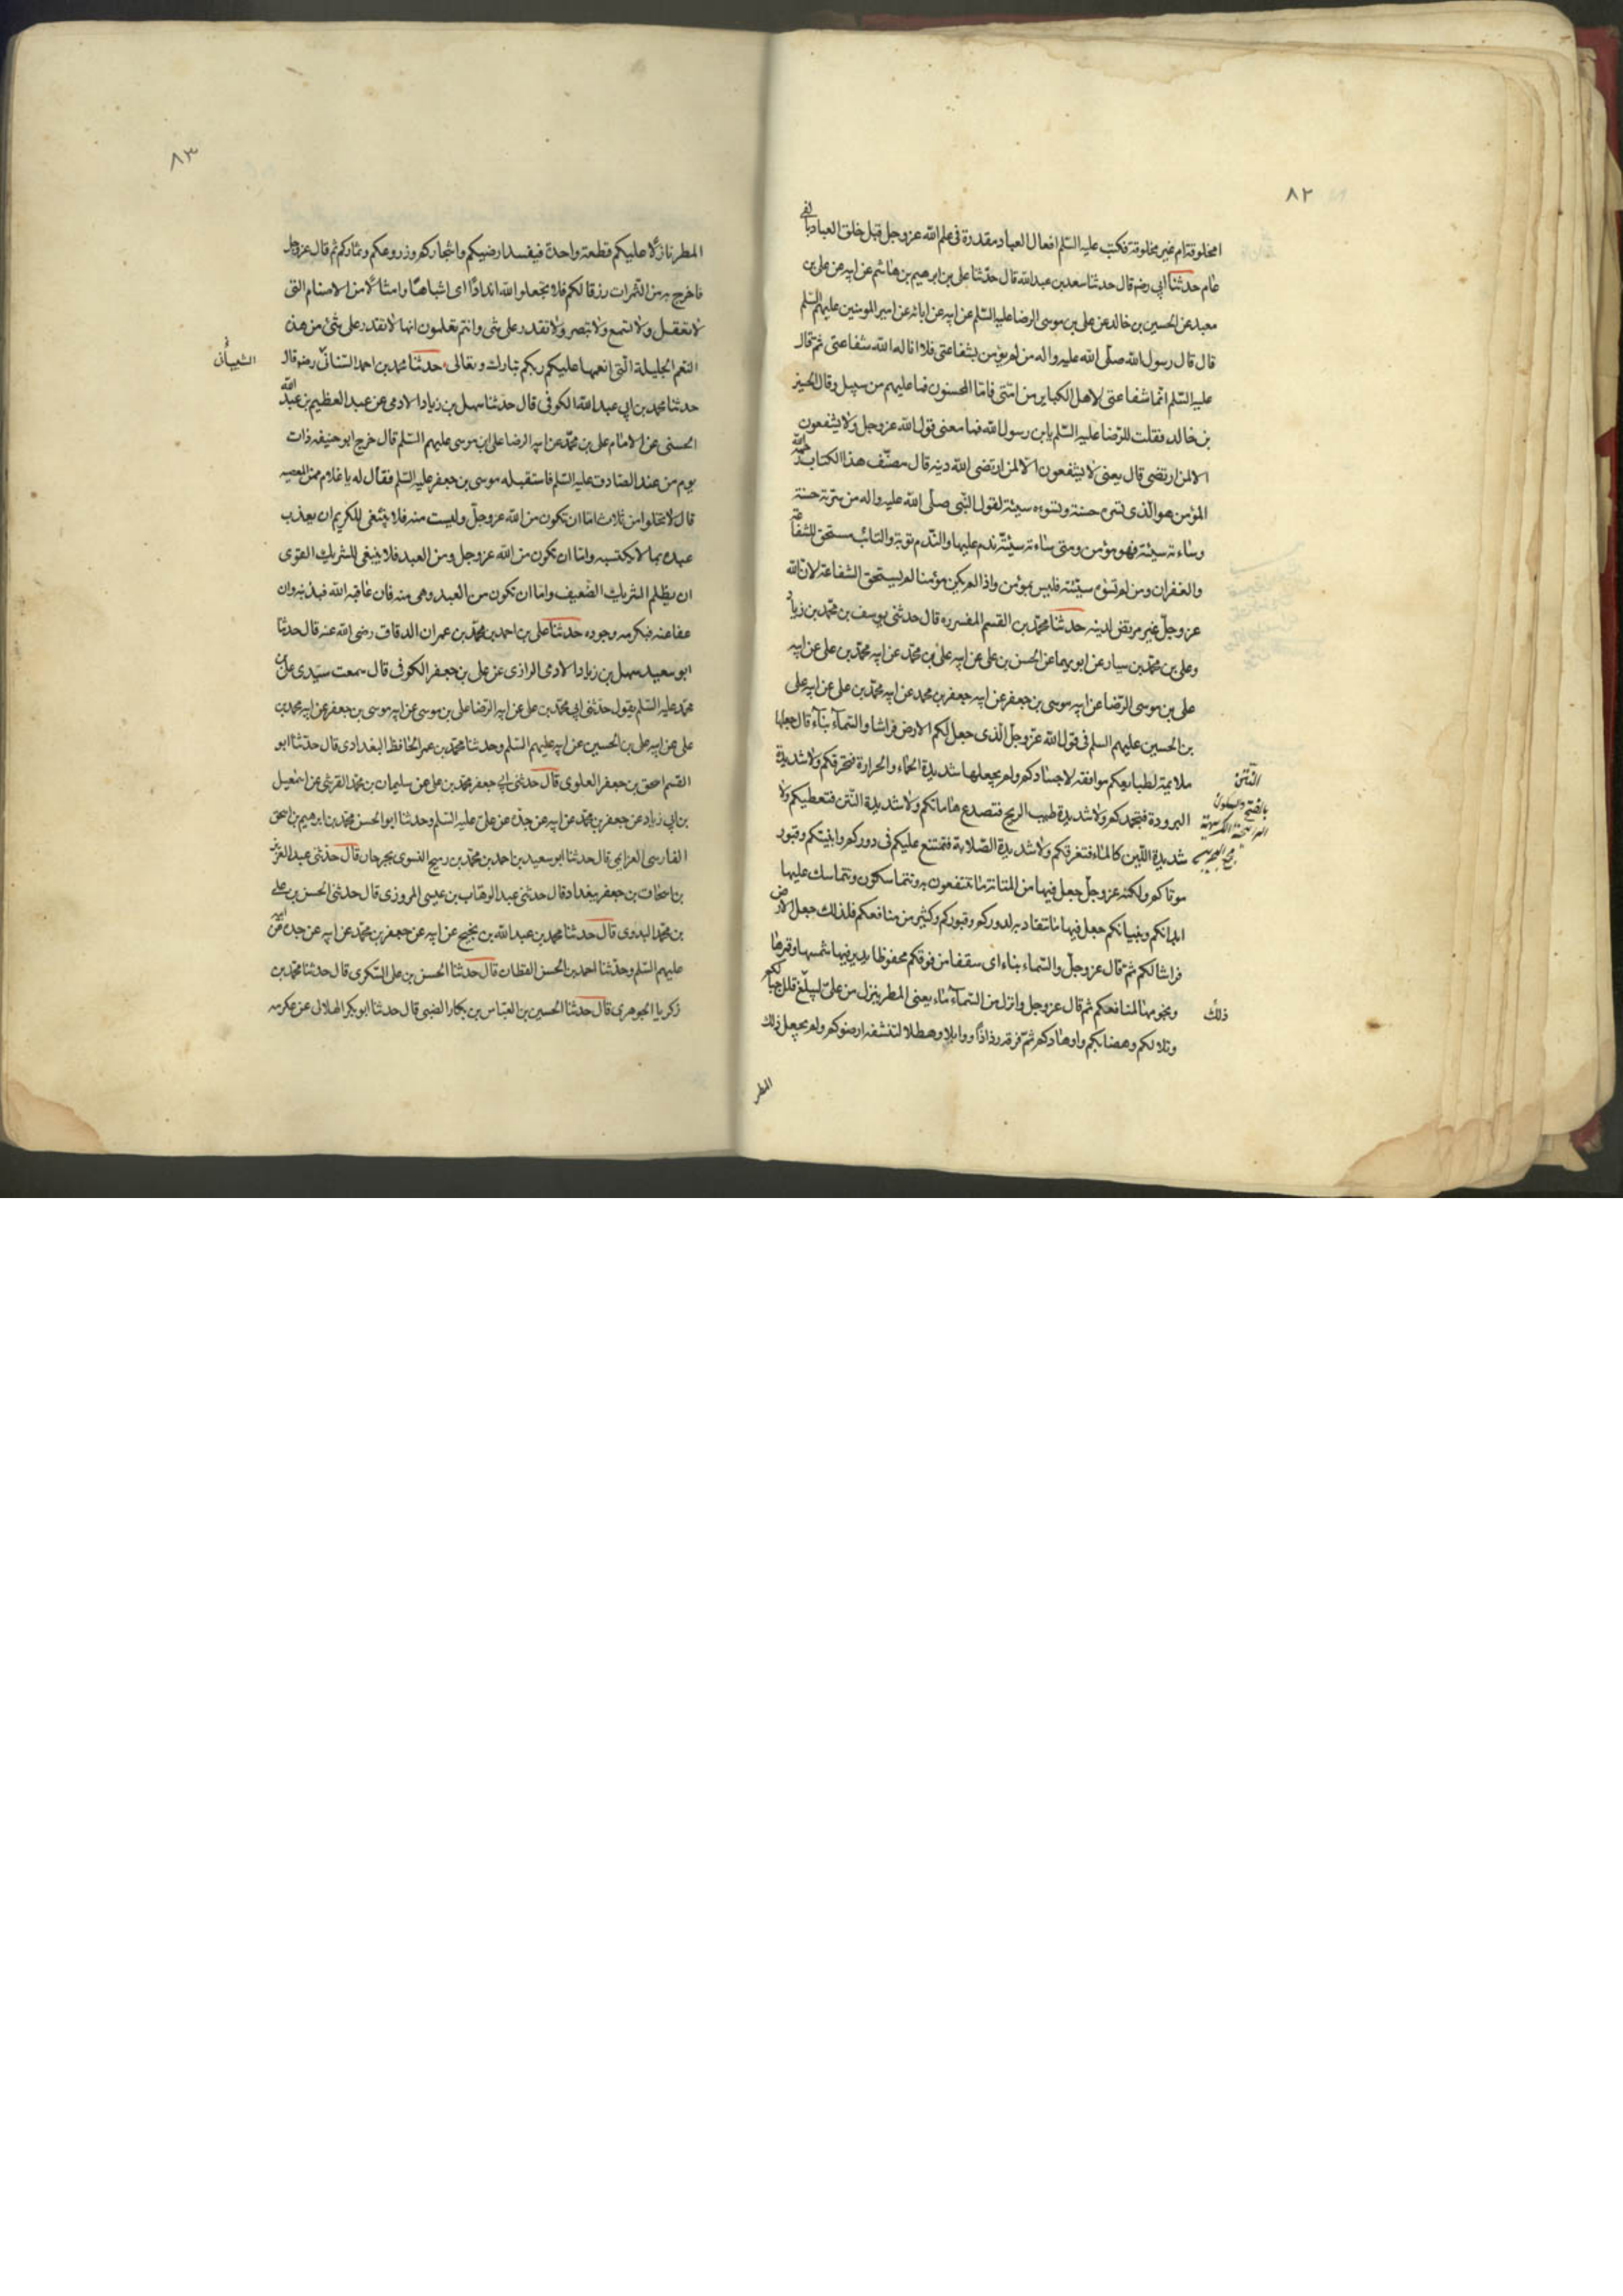 ٨٢
امخلوقة ام غير مخلوقة فكتب عليه السّلم افعال العباد مقدرة فى علم الله عز وجل قبل خلق العباد بالفى
عام حدثنا ابي رضه قال حدثنا سعد بن عبد الله قال حدّثنا على بن ابرهيم بن هاشم عن ابيه عن على بن
معبد عن الحسين بن خالد عن على بن موسى الرضا عليه السّلم عن ابيه عن ابائه عن امير المومنين عليهم السّلم
قال قال رسول الله صلّى الله عليه واله من لم يؤمن بشفاعتى فلا اناله الله شفاعتى ثم قال
عليه السّلم انّما شفاعتى لاهل الكباير من امّتى فامّا المحسنون فما عليهم من سبيل وقال الحسين
بن خالد فقلت للرّضا عليه السّلم يابن رسول الله فما معنى قول الله عز وجل ولا يشفعون
الا لمن ارتضى قال يعنى لا يشفعون الّا لمن ارتضى الله دينه قال مصنّف هذا الكتاب رحمه الله
المؤمن هو الّذى تسره حسنة وتسوءه سيئة لقول النّبى صلّى الله عليه واله من سرته حسنة
وساءته سيئة فهو مؤمن ومتى ساءته سيئة ندم عليها والنّدم توبة والتائب مستحق للشفاعة
والغفران ومن لم تسؤه سيّئته فليس بمؤمن واذا لم يكن مؤمنا لم يستحق الشفاعة لان الله
عز وجلّ غير مرتض لدينه حدثنا محمّد بن القسم المفسر ره قال حدثنى يوسف بن محمّد بن زياد
وعلى بن محمّد بن سيار عن ابويهما عن الحسن بن على عن ابيه علىّ بن محمّد عن ابيه محمّد بن على عن ابيه
على بن موسى الرّضا عن ابيه موسى بن جعفر عن ابيه جعفر بن محمد عن ابيه محمّد بن على عن ابيه على
بن الحسين عليهم السلم فى قول الله عزّ وجلّ الّذى جعل لكم الارض فراشا والسّماء بناء قال جعلها
ملايمة لطبايعكم موافقة لاجسادكم ولم يجعلها شديدة الحماء والحرارة فتحرقكم ولا شديدة
البرودة فتجمدكم ولا شديدة طيب الريح فتصدع هاماتكم ولا شديدة النّتن فتعطبكم ولا
شديدة اللّين كالماء فتغرقكم ولا شديدة الصّلابة فتمتنع عليكم فى دوركم وابنيتكم وقبور
موتاكم ولكنه عز وجلّ جعل فيها من المتانة ما تنتفعون به وتتماسكون وتتماسك عليها
ابدانكم وبنيانكم جعل فيها ما تنقاد به لدوركم وقبوركم وكثير من منافعكم فلذلك جعل الارض
فراشا لكم ثم قال عز وجلّ والسّماء بناء اى سقفا من فوقكم محفوظا يدير فيها شمسها وقمرها
ونجومها لمنافعكم ثم قال عز وجل وانزل من السّماء ماء يعنى المطر ينزل من على ليبلّغ قلل جبالكم
وتلالكم وهضابكم واوهادكم ثمّ فرقه رذاذاً ووابلا وهطلا لتنشفه ارضوكم ولم يجعل ذلك
النّتن
بالفتح والسكون
الرائحة الكريهة
مجمع البحرين
ذلك
المطر
٨٣
المطر نازلًا عليكم قطعة واحدة فيفسد ارضيكم واشجاركم وزروعكم وثماركم ثم قال عز وجل
فاخرج به من الثّمرات رزقا لكم فلا تجعلوا لله اندادًا اى اشباهًا وامثالًا من الاصنام التى
لا تعقل ولا تسمع ولا تبصر ولا تقدر على شى وانتم تعلمون انها لا تقدر على شئ من هذه
النّعم الجليلة الّتى انعمها عليكم ربكم تبارك وتعالى حدثنا محمد بن احمد السنانىّ رضه قال
حدثنا محمد بن ابى عبد الله الكوفى قال حدثنا سهل بن زياد الادمى عن عبد العظيم بن عبد الله
الحسنى عن الامام على بن محمّد عن ابيه الرضا على بن موسى عليهم السّلم قال خرج ابو حنيفه ذات
يوم من عند الصّادق عليه السّلم فاستقبله موسى بن جعفر عليه السّلم فقال له يا غلام ممن المعصيه
قال لا تخلوا من ثلاث امّا ان تكون من الله عز وجلّ وليست منه فلا ينبغى للكريم ان يعذب
عبده بما لا يكتسبه وامّا ان تكون من الله عز وجل ومن العبد فلا ينبغى للشريك القوى
ان يظلم الشريك الضّعيف وامّا ان تكون من العبد وهى منه فان عاقبه الله فبذنبه وان
عفا عنه فبكرمه وجوده حدثنا على بن احمد بن محمّد بن عمران الدقاق رضى الله عنه قال حدثنا
ابو سعيد سهل بن زياد الادمى الرازى عن على بن جعفر الكوفى قال سمعت سيّدى على بن
محمّد عليه السّلم يقول حدّثنى ابى محمّد بن على عن ابيه الرّضا على بن موسى عن ابيه موسى بن جعفر عن ابيه محمد بن
على عن ابيه على بن الحسين عن ابيه عليهم السّلم وحدثنا محمّد بن عمر الحافظ البغدادى قال حدّثنا ابو
القسم اسحق بن جعفر العلوى قال حدثنى ابى جعفر محمّد بن على عن سليمان بن محمّد القرشى عن اسمعيل
بن ابى زياد عن جعفر بن محمّد عن ابيه عن جدّه عن علىّ عليه السّلم وحدثنا ابو الحسن محمّد بن ابرهيم بن اسحق
الفارسى العزايمى قال حدثنا ابو سعيد بن احمد بن محمّد بن رميح النسوى بجرجان قال حدّثنى عبد العزيز
بن اسحاق بن جعفر ببغداد قال حدثنى عبد الوهاب بن عيسى المروزى قال حدثنى الحسن بن على
بن محمّد البلوى قال حدثنا محمد بن عبد الله بن نجيح عن ابيه عن جعفر بن محمّد عن ابيه عن جده عن ابيه
عليهم السّلم وحدّثنا احمد بن الحسن القطان قال حدثنا الحسن بن على السّكرى قال حدثنا محمّد بن
زكريا الجوهرى قال حدثنا الحسين بن العبّاس بن بكار الضبى قال حدثنا ابو بكر الهلالى عن عكرمه
الشيبانى